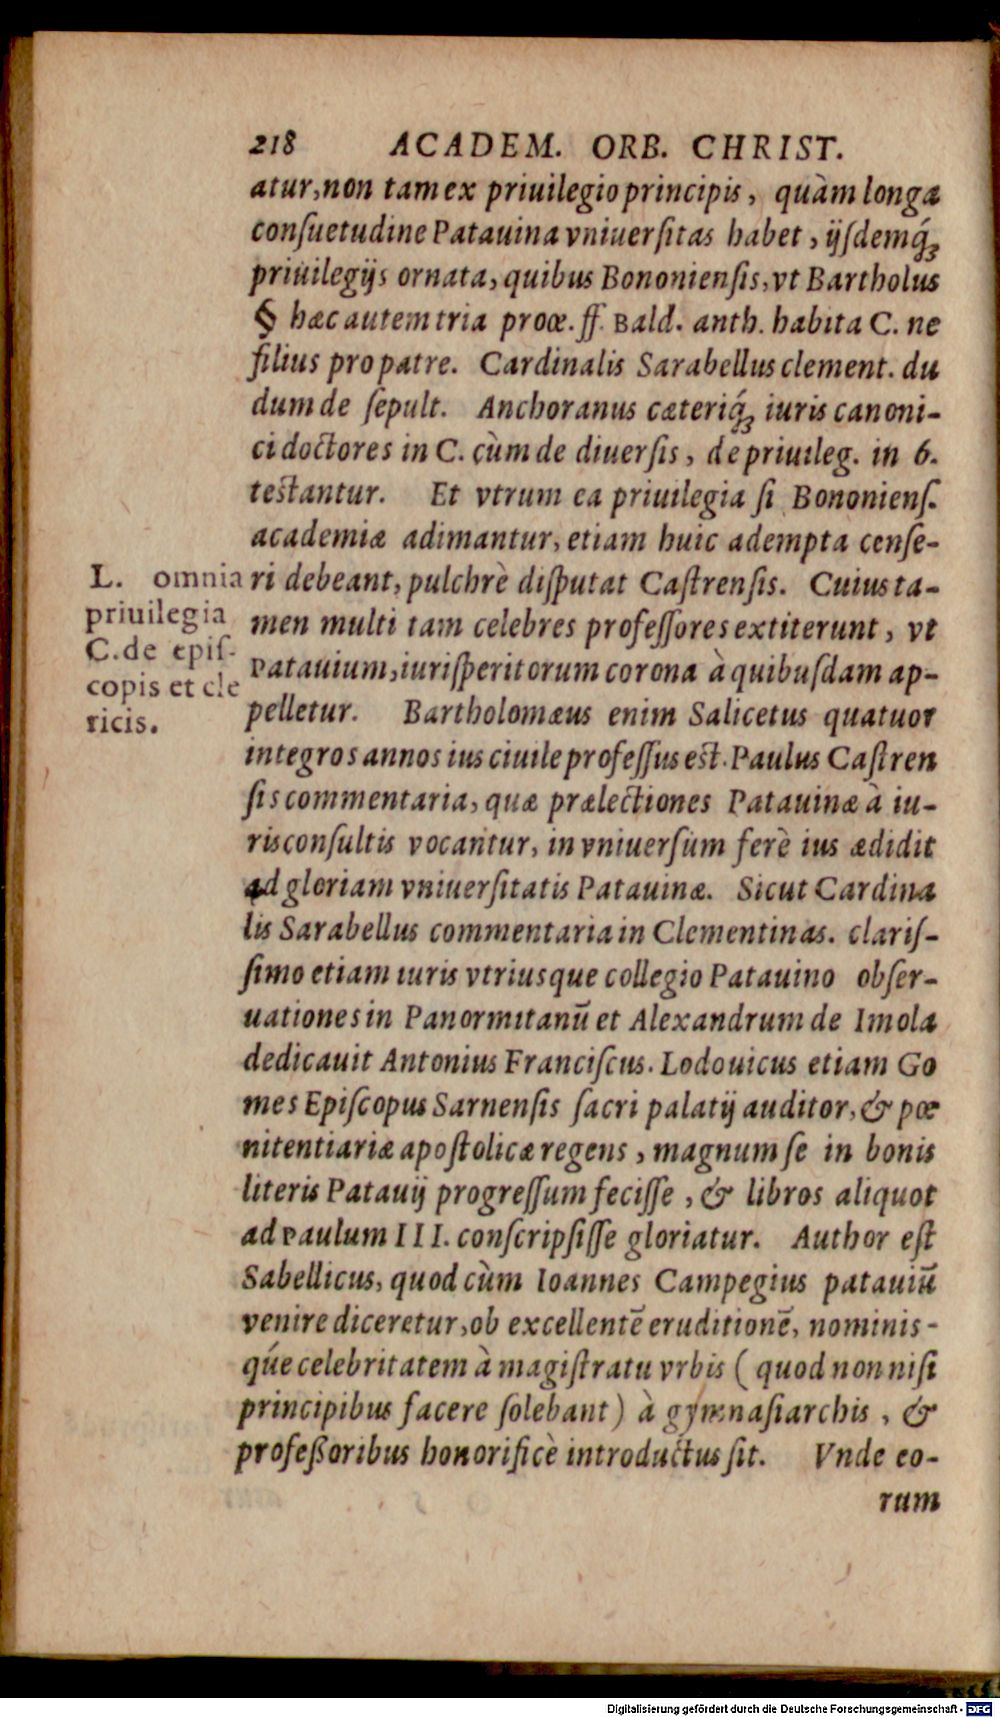 218 ACADEM. ORB. CHRIST.
atur, non tam ex priuilegio principis, quàm longa
conſuetudine Patauina vniuerſitas habet, ijſdemq́ꝫ
priuilegijs ornata, quibus Bononienſis, vt Bartholus
§ hæc autem tria proœ. ff. Bald. anth. habita C. ne
filius pro patre. Cardinalis Sarabellus clement. du
dum de ſepult. Anchoranus cæteriq́ꝫ iuris canoni-
ci doctores in C. cùm de diuerſis, de priuileg. in 6.
testantur. Et vtrum ea priuilegia ſi Bononienſ.
academiæ adimantur, etiam huic adempta cenſe-
ri debeant, pulchrè diſputat Caſtrenſis. Cuius ta-
men multi tam celebres profeſſores extiterunt, vt
Patauium, iuriſperitorum corona à quibuſdam ap-
pelletur. Bartholomæus enim Salicetus quatuor
integros annos ius ciuile profeſſus est. Paulus Caſtren
ſis commentaria, quæ prælectiones Patauinæ à iu-
risconſultis vocantur, in vniuerſum ferè ius ædidit
ad gloriam vniuerſitatis Patauinæ. Sicut Cardina
lis Sarabellus commentaria in Clementinas. clariſ-
ſimo etiam iuris vtriusque collegio Patauino obſer-
uationes in Panormitanū et Alexandrum de Imola
dedicauit Antonius Franciſcus. Lodouicus etiam Go
mes Epiſcopus Sarnenſis ſacri palatij auditor, & pœ
nitentiariæ apoſtolicæ regens, magnum ſe in bonis
literis Patauij progreſſum feciſſe, & libros aliquot
ad Paulum III. conſcripſiſſe gloriatur. Author eſt
Sabellicus, quod cùm Ioannes Campegius patauiū
venire diceretur, ob excellentē eruditionē, nominis-
qúe celebritatem à magiſtratu vrbis ( quod non niſi
principibus facere ſolebant) à gymnaſiarchis, &
profeßoribus honorificè introductus ſit. Vnde eo-
rum
L. omnia
priuilegia
C. de epiſ-
copis et cle
ricis.
Digitalisierung gefördert durch die Deutsche Forschungsgemeinschaft - DFG